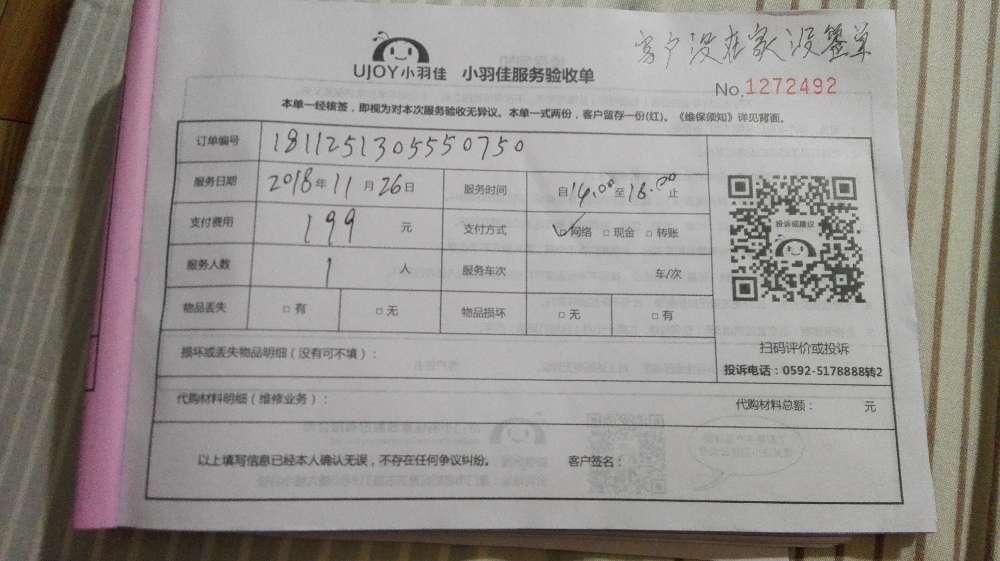 客户没在家没签单
UJOY小羽佳 小羽佳服务验收单
No.1272492
本单一经核签，即视为对本次服务验收无异议。本单一式两份，客户留存一份(红)。《维保须知》详见背面。
订单编号 1811251305550750
服务日期 2018年11月26日 服务时间 自14.00至18.00止
支付费用 199 元 支付方式 ☑网络 □现金 □转账
服务人数 1 人 服务车次 车/次
投诉或建议
物品丢失 □有 □无 物品损坏 □无 □有
扫码评价或投诉
投诉电话：0592-5178888转2
损坏或丢失物品明细（没有可不填）：
代购材料明细（维修业务）： 代购材料总额： 元
以上填写信息已经本人确认无误，不存在任何争议纠纷。 客户签名：